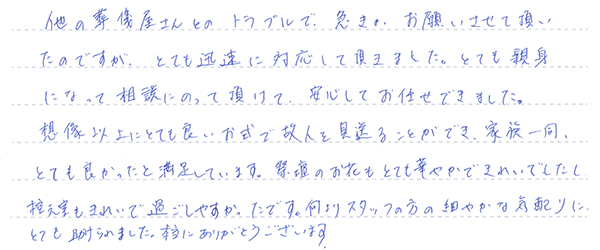 他の葬儀屋さんとのトラブルで、急きょ、お願いさせて頂い
たのですが、とても迅速に対応して頂きました。とても親身
になって相談にのって頂けて、安心してお任せできました。
想像以上にとても良いお式で故人を見送ることができ、家族一同、
とても良かったと満足しています。祭壇のお花もとても華やかできれいでしたし
控え室もきれいで過ごしやすかったです。何よりスタッフの方の細やかな気配りに、
とても助けられました。本当にありがとうございます